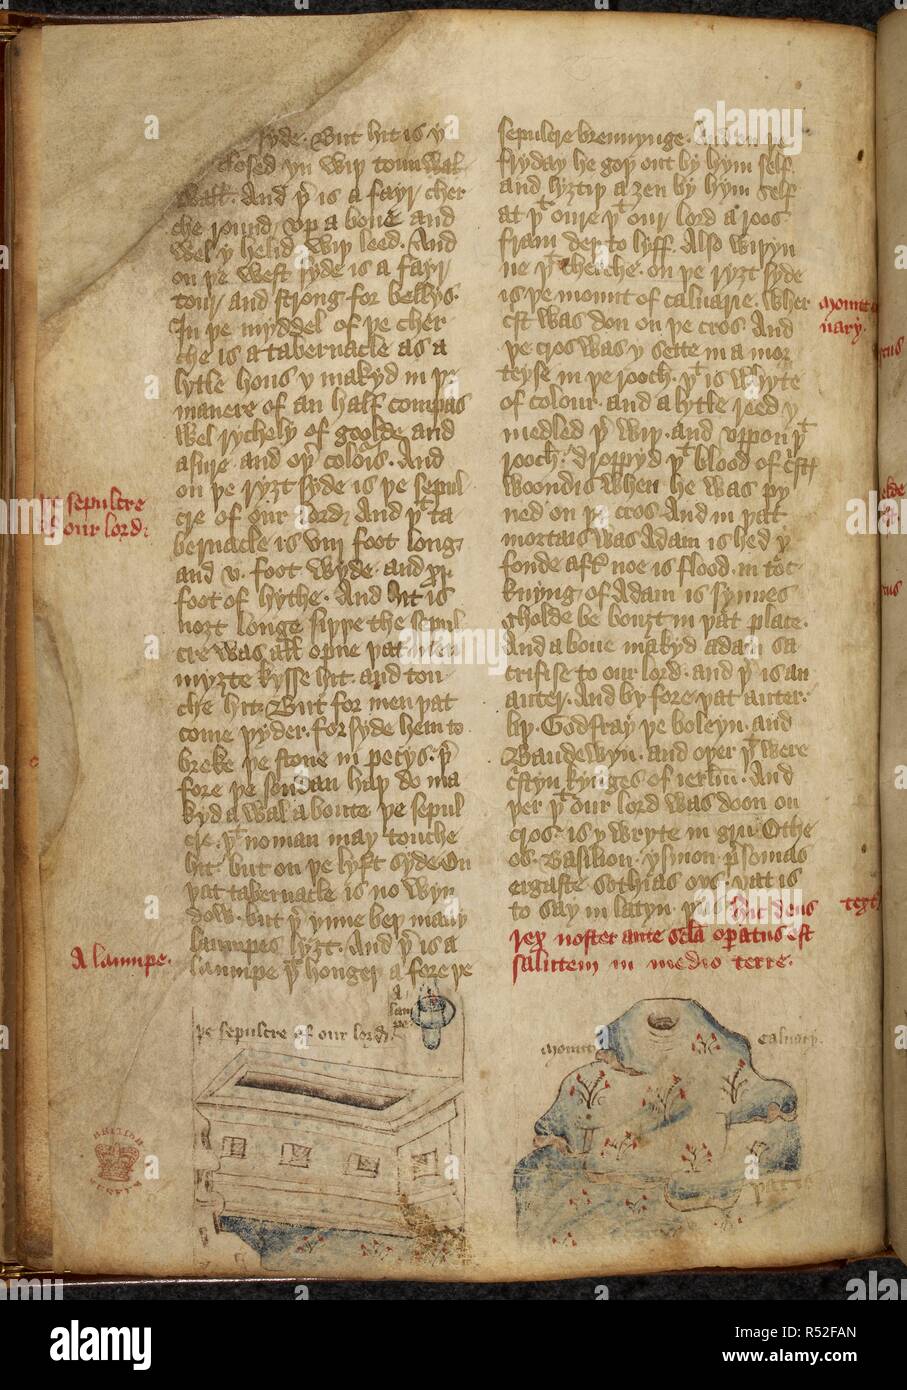 syde. But hit is y
closed yn wiþ toun wal
wall. And þͬ is a fayr cher
che round vp a boue and
wel y helid wiþ leed. And
on þe west syde is a fayr
tour and strong for bellys.
In þe myddel of þe cher
che is a tabernacle as a
lytle hous y makyd in þe
manere of an half compas
wel rychely of goolde and
asure and oþͬ colors. And
on þe ryȝt syde is þe sepul
cre of our lord. And þͭ ta
bernacle is viij foot long
and v. foot wyde. and
foot of hythe. And hit is
noȝt longe siþþe the sepul
cre was all opne þat men
myȝte kysse hit. and tou
che hit. But for men þat
come þyder. forsyde hem to
breke þe stone in pecys. þͬ
fore þe soudan haþ do ma
kyd a wal a boute þe sepul
cre. þͭ noman may touche
hit. but on þe lyft syde. On
þat tabernacle is no wyn
dow. but þͬ ynne beþ many
laumpes lyȝt. And þͬ is a
laumpe þͭ hongeþ a fore þe
þe sepulcre
of our lord.
A laumpe.
sepulcre brennynge. And on þe
fryday he goþ out by hym self.
and lyȝtiþ a ȝen by hym self
at þͭ oure þͭ our lord a roos
fram deþ to lyff. Also wiþyn
ne þͭ cherche. on þe ryȝt syde
is þe mount of caluarie. wher
cͬst was don on þe cros. And
þe cros was y sette in a mor
teyse in þe rooch. þͭ is whyte
of colour. and a lytle reed y
medled þͬ wiþ. and vppon þͭ
rooch. droppyd þͭ blood of cͬst
woondis when he was py
ned on þe cros. And in þat
mortais was Adam is hed y
fonde aftͬ noe is flood. in toc
knyng of Adam is synnes
scholde be bouȝt in þat place.
And a boue makyd adam sa
crifise to our lord. and þͬ is an
auter. And by fore þat auter.
liþ. Godfray þe boleyn. and
Baudewyn. and oþer þͭ were
cͬstyn kynges of ierlm. And
þer þͭ our lord was doon on
cros. is y wryte in gru. Othe
os. Basilion. ysmon. pͬsomas
ergaste sothias oys. þat is
to say in latyn. hic deus
rex noster ante scl̄a opͬatus est
salutem in medio terre.
mount
uary.
text
a
lam
pe.
þe sepulcre of our lord.
mount
caluary.
BRITISH
MUSEUM
alamy
Image ID: R52FAN
www.alamy.com